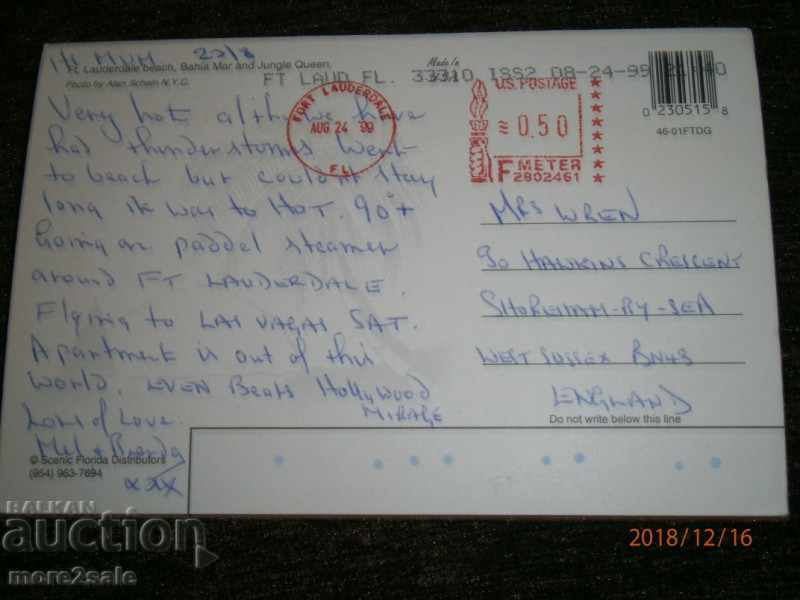 HI MUM 23/8
Ft. Lauderdale beach, Bahia Mar and Jungle Queen.
Photo by Alan Schein N.Y.C.
Made in
FT LAUD FL. 33310 ISS2 08-24-99 21:40
FORT LAUDERDALE
AUG 24 99
FL
U.S. POSTAGE
≈ 0.50
F METER
2802461
0 230515 8
46-01FTDG
Very hot altho we have
had thunderstorms Went
to beach but couldnt stay
long it was to HOT. 90°+
Going on paddel steamer
around FT LAUDERDALE.
Flying to LAS VAGAS SAT.
Apartment is out of this
World. EVEN Beats Hollywood
MIRAGE
Lots of Love
Mel + Brenda
xxx
MRS WREN
90 HAWKINS CRESCENT
SHOREHAM-BY-SEA
WEST SUSSEX BN43
ENGLAND
Do not write below this line
© Scenic Florida Distributors
(954) 963-7694
BALKAN
auction
more2sale
2018/12/16